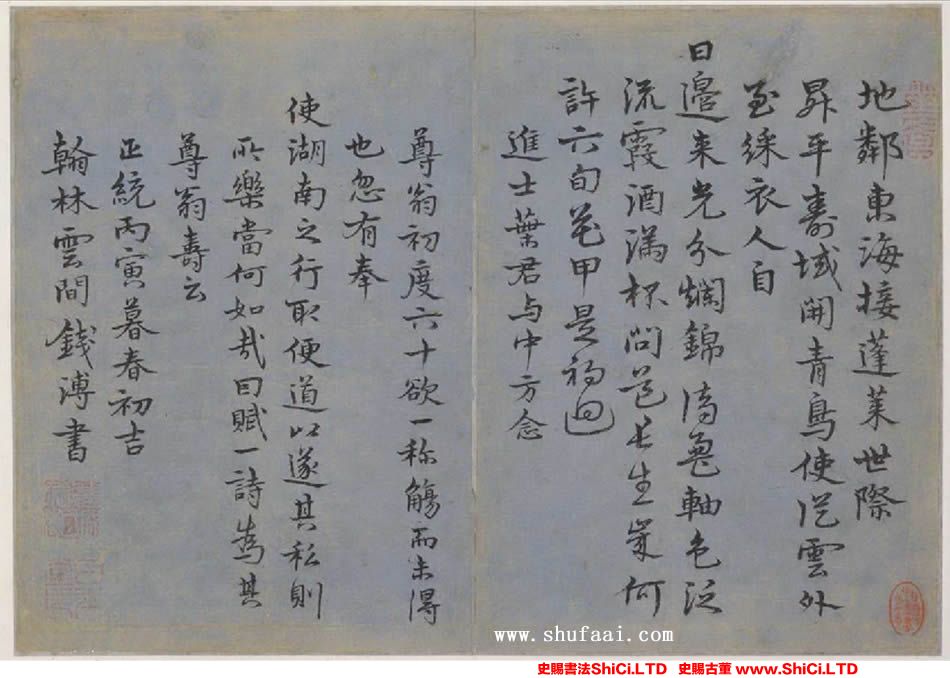 地鄰東海接蓬萊世際
昇平壽域開青鳥使從雲外
至綵衣人自
日邊来光分爛錦軸色泛
流霞酒滿杯問道長生何
許六旬花甲是初迴
進士葉君与中方念
尊翁初度六十欲一称觴而未得
也忽有奉
使湖南之行取便道以遂其私則
所樂當何如哉因賦一詩為其
尊翁壽云
正統丙寅暮春初吉
翰林雲間錢溥書
www.shufaai.com
史賜書法ShiCi.LTD 史賜古董 www.ShiCi.LTD